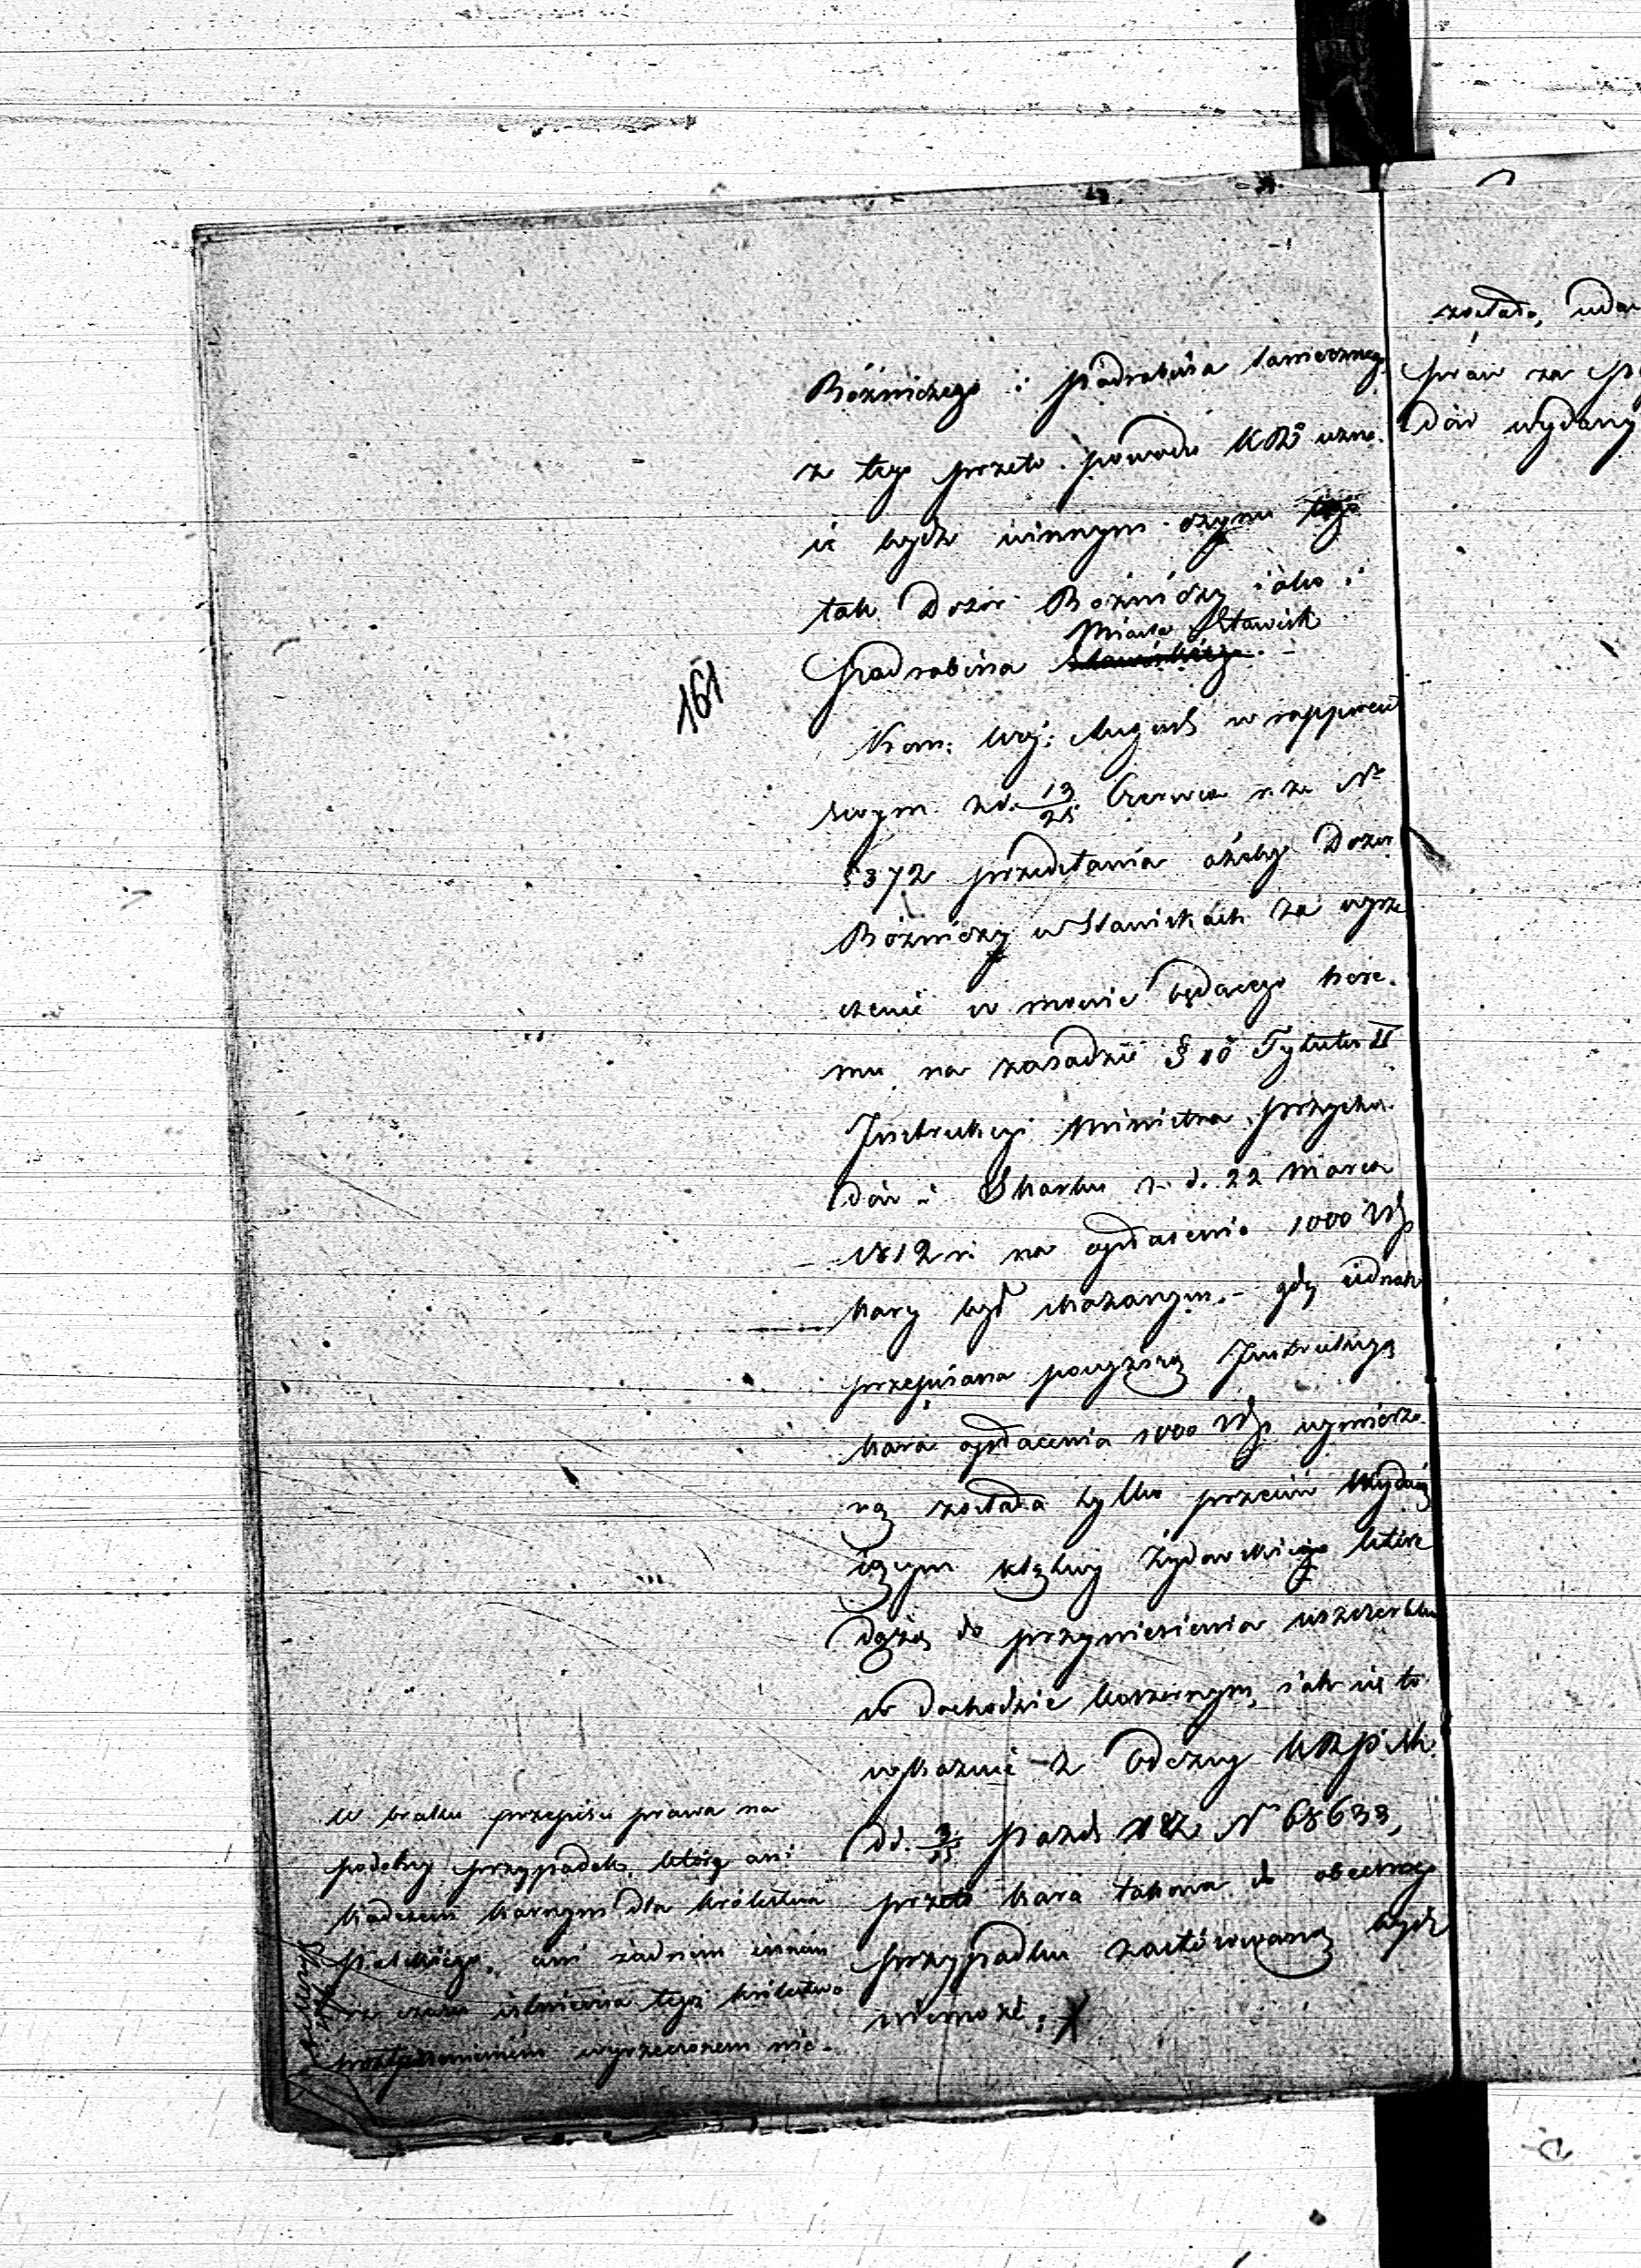 Bóżniczego i podrabina tamecznego
z tego przeto powodu KRS uzna.
ie bydź winnym czynu
tak Dozór Bóżniczy iako i
Miasta Stawisk
Podrabina
161
Kom: Woj: August w rapporcie
swym z d. 13/25 Czerwca r. z. N°
przedstawia ażeby Dozór
Bóżniczy w Stawiskach za wyrze
czenie w mowie będącego here.
mu na zasadzie § 10 Tytułu II
Instrukcyi Ministra Przycho
dów i Skarbu z d. 22 Marca
1812 r. na opłacenie 1000 Złp
kary był skazanym. - gdy iednak
przepisana powyższą Instrukcyą
kara opłacenia 1000 Złp wymierzo
ną została tylko przeciw Wydaią
iącym klątwy Żydowskiego które
dążą do przyniesienia uszczerbku
w dochodzie koszernym, iak się to
wykazuie z Odezwy KRP i Sk.
dd. Paźdz N° 68633,
przeto kara takowa do obecnego
przypadku zastósowaną bydź
niemoże; X
W braku przepisu prawa na
podobny przypadek, który ani
Kodexem Karnym dla Królestwa
Polskiego, ani żadnem innem
w czasie istnienia tegoż Królestwa
postanowieniem wyrzeczonem nie-
zostało, uda
praw za
dów wydany